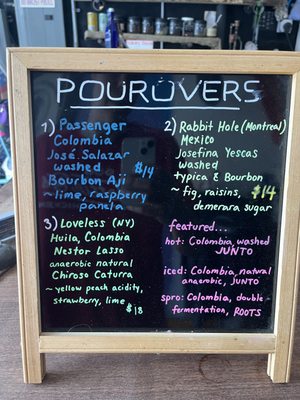 POUROVERS
1) Passenger
Colombia
José Salazar
washed
Bourbon Aji
~ lime, raspberry
panela
$14
2) Rabbit Hole (Montreal)
Mexico
Josefina Yescas
washed
typica & Bourbon
~ fig, raisins,
demerara sugar
$14
3) Loveless (NY)
Huila, Colombia
Nestor Lasso
anaerobic natural
Chiroso Caturra
~ yellow peach acidity,
strawberry, lime
$18
featured...
hot: Colombia, washed
JUNTO
iced: Colombia, natural
anaerobic, JUNTO
spro: Colombia, double-
fermentation, ROOTS